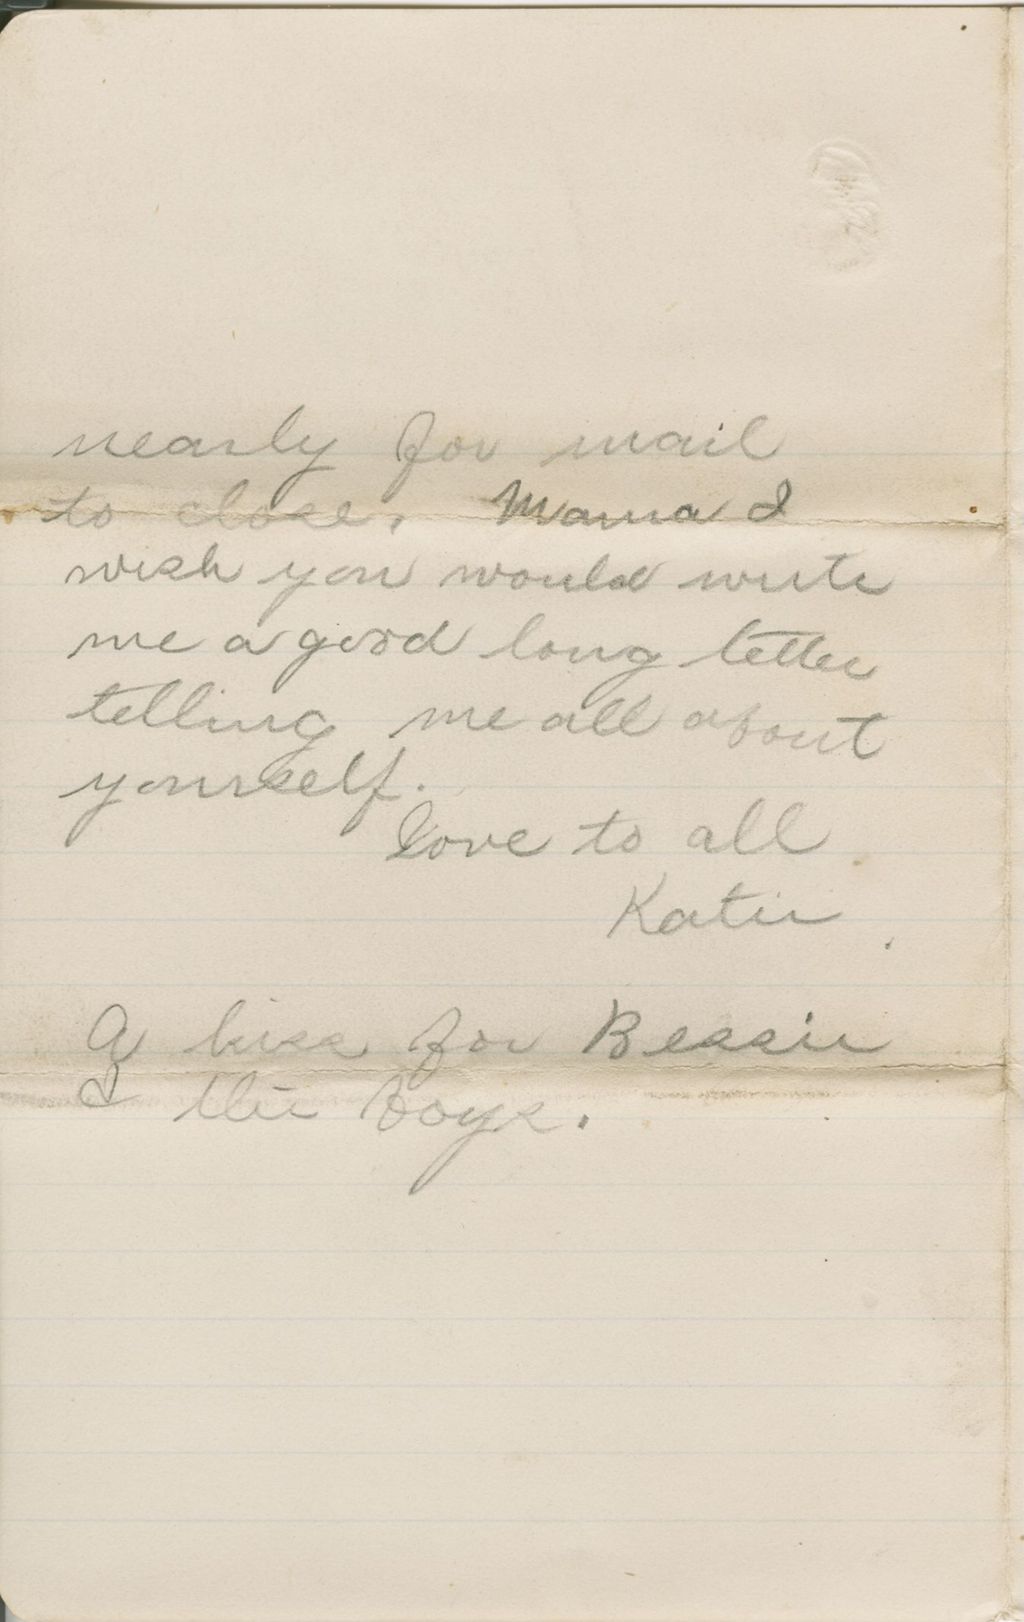 nearly for mail
to close. Mama I
wish you would write
me a good long letter
telling me all about
yourself.
Love to all
Katie
A kiss for Bessie
& the boys.